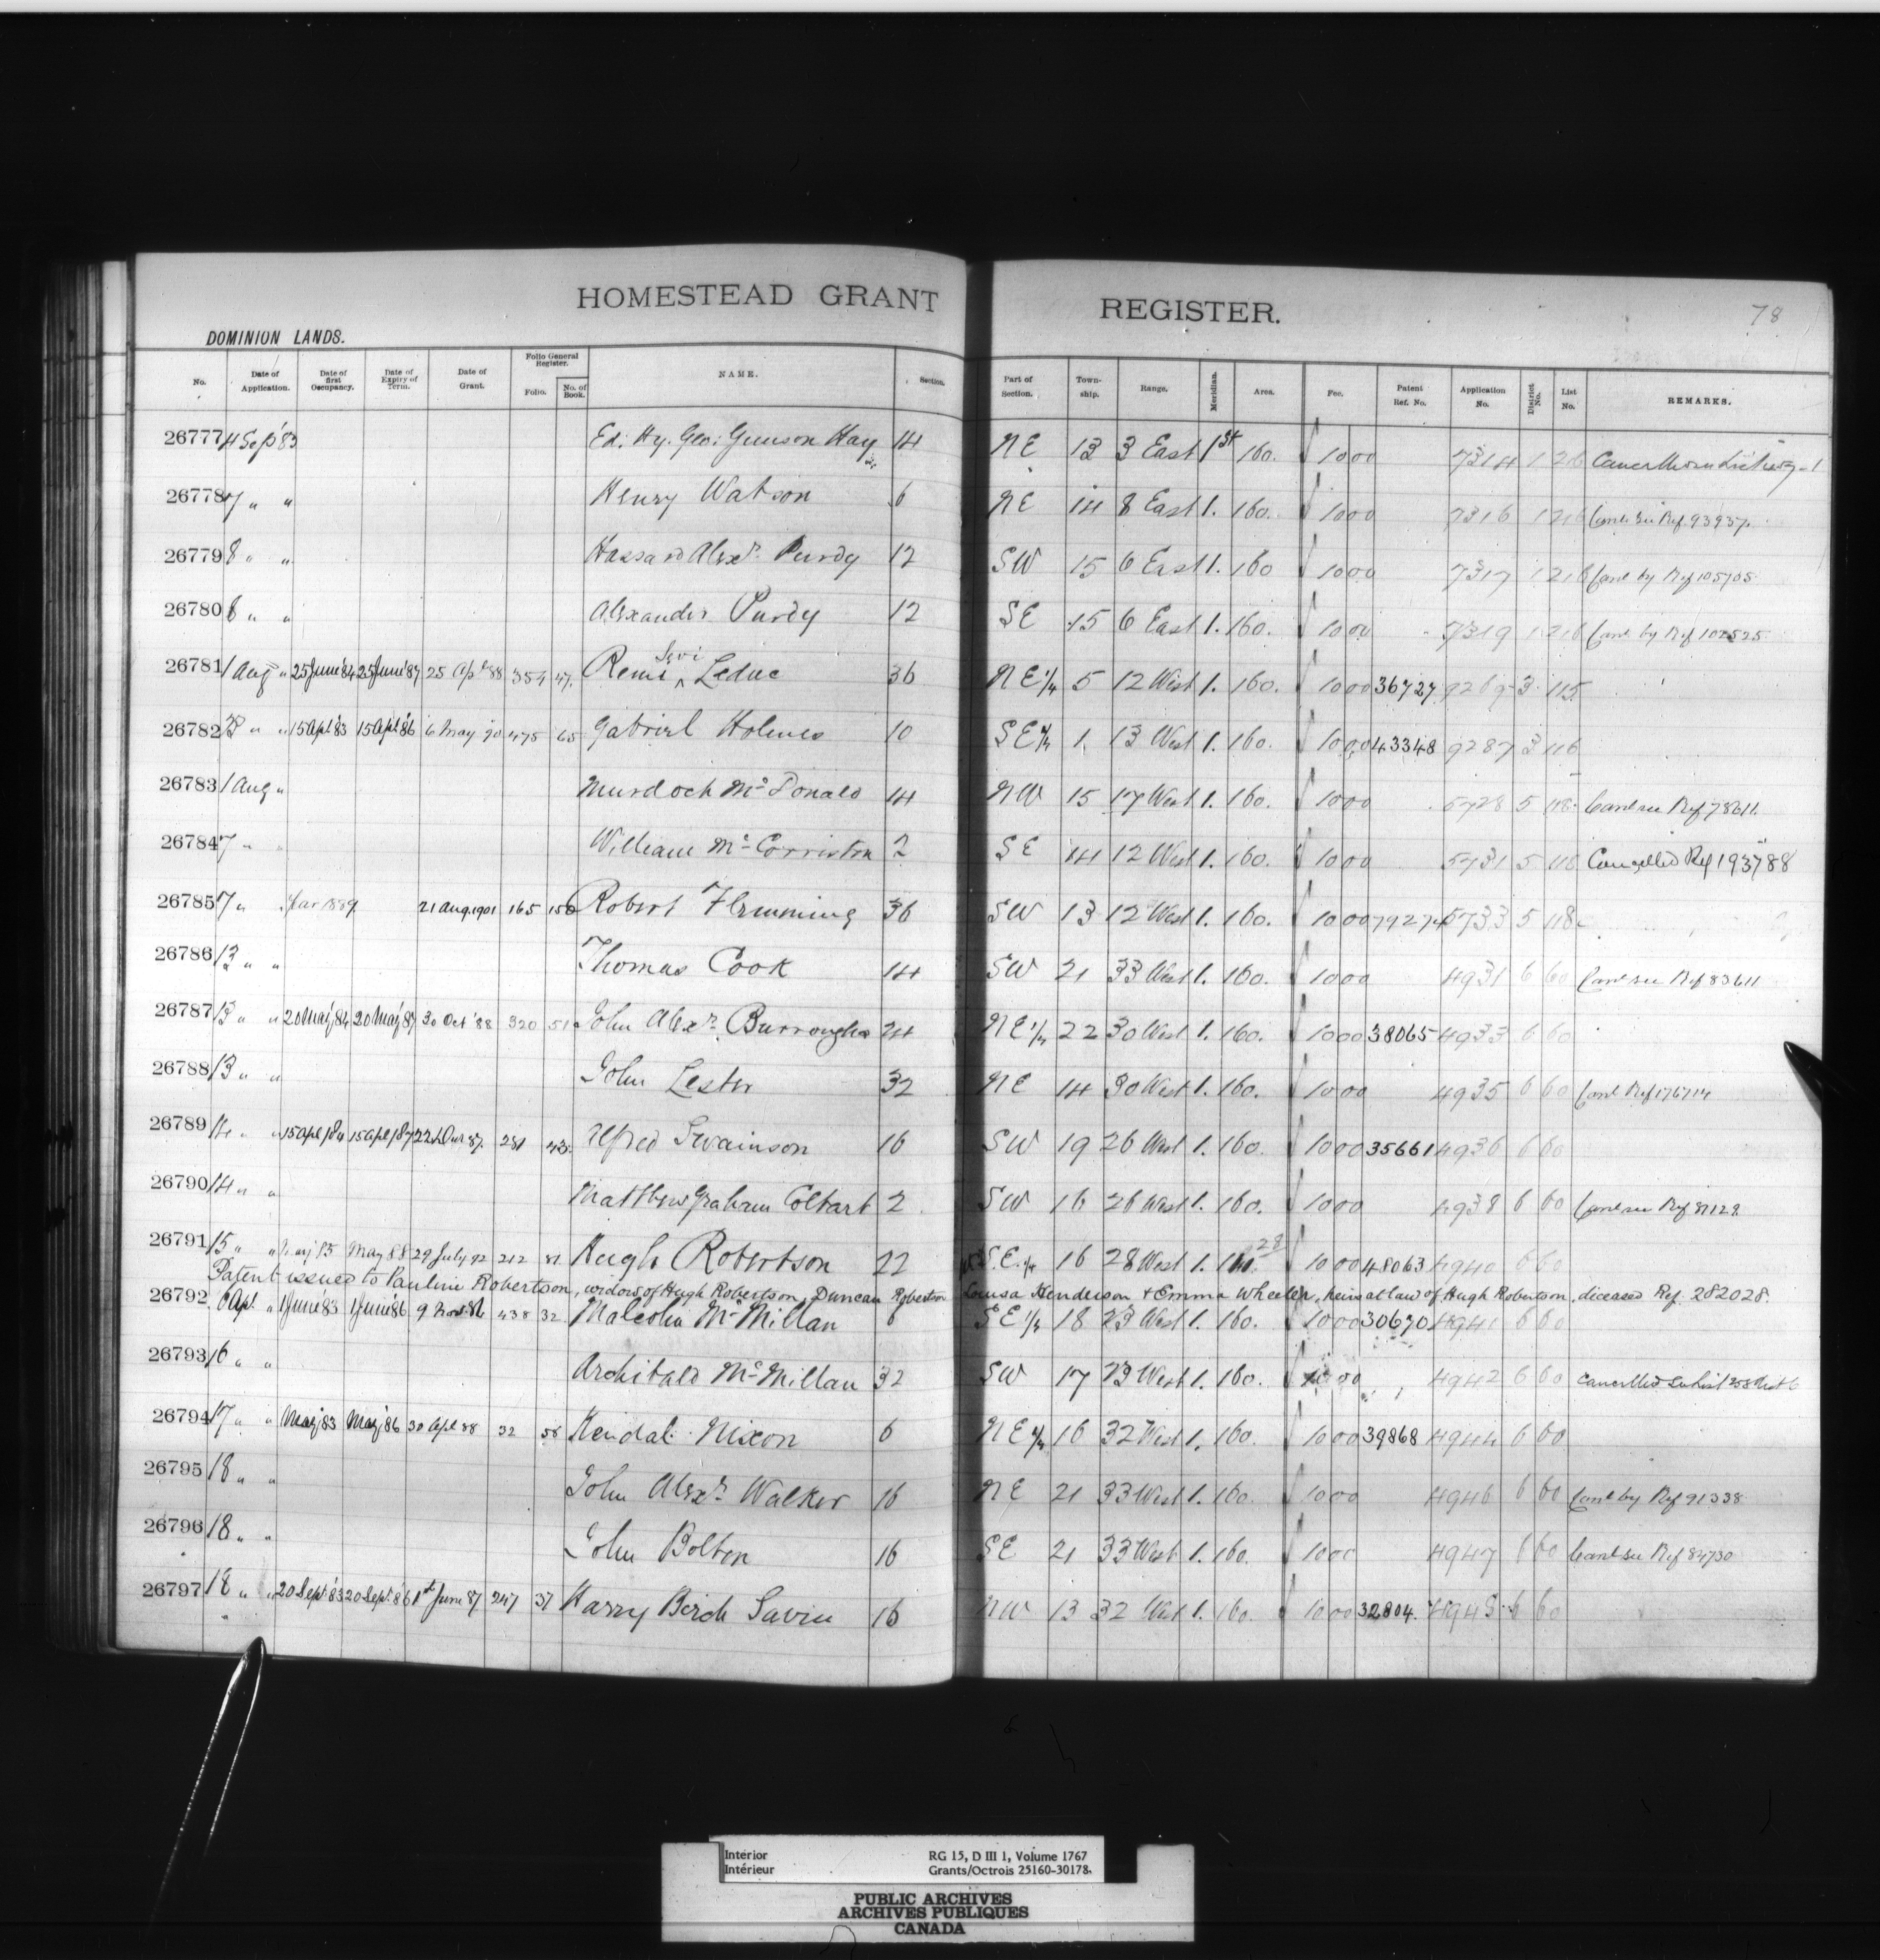 HOMESTEAD GRANT REGISTER.
78
DOMINION LANDS.
No. Date of Application. Date of first Occupancy. Date of Expiry of Term. Date of Grant. Folio General Register. Folio. No. of Book. NAME. Section. Part of Section. Town-ship. Range. Meridian. Area. Fee. Patent Ref. No. Application No. District No. List No. REMARKS.
26777 4 Sep '83 Ed: Hy. Geo: Gunson Hay 14 NE 13 3 East 1st 160. 10 00 7314 1 26
26778 7 " " Henry Watson 6 NE 14 8 East 1. 160. 10 00 7316 1 216 Canl. See Ref 93937.
26779 8 " " Hassard Alexr. Purdy 12 SW 15 6 East 1. 160 10 00 7317 1 216 Canl by Ref 105705
26780 8 " " Alexander Purdy 12 SE 15 6 East 1. 160. 10 00 7319 1 216 Canl by Ref 102525
26781 1 Aug " 25 June '84 25 June '87 25 Apl 88 354 47. Remi Levi Leduc 36 NE 1/4 5 12 West 1. 160. 10 00 36727 9269 3 115
26782 " " 15 Apl '83 15 Apl '86 6 May 90 475 65 Gabriel Holmes 10 SE 1/4 1 13 West 1. 160. 10 00 43348 9287 3 116
26783 1 Aug " Murdoch McDonald 14 NW 15 17 West 1. 160. 10 00 5728 5 118 Canl see Ref 78611.
26784 7 " " William McCorriston 2 SE 14 12 West 1. 160. 10 00 5731 5 118 Cancelled Ref 193788
26785 7 " 1889 21 Aug. 1901 165 156 Robert Flemming 36 SW 13 12 West 1. 160. 10 00 79274 5733 5 118
26786 13 " " Thomas Cook 14 SW 21 33 West 1. 160. 10 00 4931 6 60 Canl see Ref 83611
26787 13 " " 20 May '84 20 May '87 30 Oct '88 320 51 John Alexr. Burroughs 24 NE 1/4 22 30 West 1. 160. 10 00 38065 4933 6 60
26788 13 " " John Lester 32 NE 14 30 West 1. 160. 10 00 4935 6 60 Canl Ref 176714
26789 14 " " 15 Apl 84 15 Apl 87 22nd 87. 281 43. Alfred Swainson 16 SW 19 26 West 1. 160. 10 00 35661 4936 6 60
26790 14 " " Matthew Graham Coltart 2 SW 16 26 West 1. 160. 10 00 4938 6 60 Canl see Ref 81129
26791 15 " " May 85 May 88 29 July 92 212 81. Hugh Robertson 22 S.E. 1/4 16 28 West 1. 160. 28 10 00 48063 4940 6 60
Patent issued to Pauline Robertson, widow of Hugh Robertson, Duncan Robertson Louisa Henderson & Emma Wheeler, heirs at law of Hugh Robertson, diceased Ref. 282028.
26792 6 Apl. " 1 June '83 1 June '86 9 Nov. 86 438 32 Malcolm McMillan 6 SE 1/4 18 23 West 1. 160. 10 00 30670 4941 6 60
26793 16 " " Archibald McMillan 32 SW 17 23 West 1. 160. 10 00 4942 6 60 Cancelled See List 258
26794 17 " " May '83 May '86 30 Apl 88 32 58 Kendal Nixon 6 NE 1/4 16 32 West 1. 160. 10 00 39868 4944 6 60
26795 18 " " John Alexr. Walker 16 NE 21 33 West 1. 160. 10 00 4946 6 60 Canl by Ref 91338
26796 18 " " John Bolton 16 SE 21 33 West 1. 160. 10 00 4947 6 60 Canl see Ref 84730
26797 18 " " 20 Sept. '83 20 Sept. '86 1st June 87 247 37 Harry Birch Savin 16 NW 13 32 West 1. 160. 10 00 32804. 4948 6 60
Interior
Intérieur
RG 15, D III 1, Volume 1767
Grants/Octrois 25160-30178.
PUBLIC ARCHIVES
ARCHIVES PUBLIQUES
CANADA